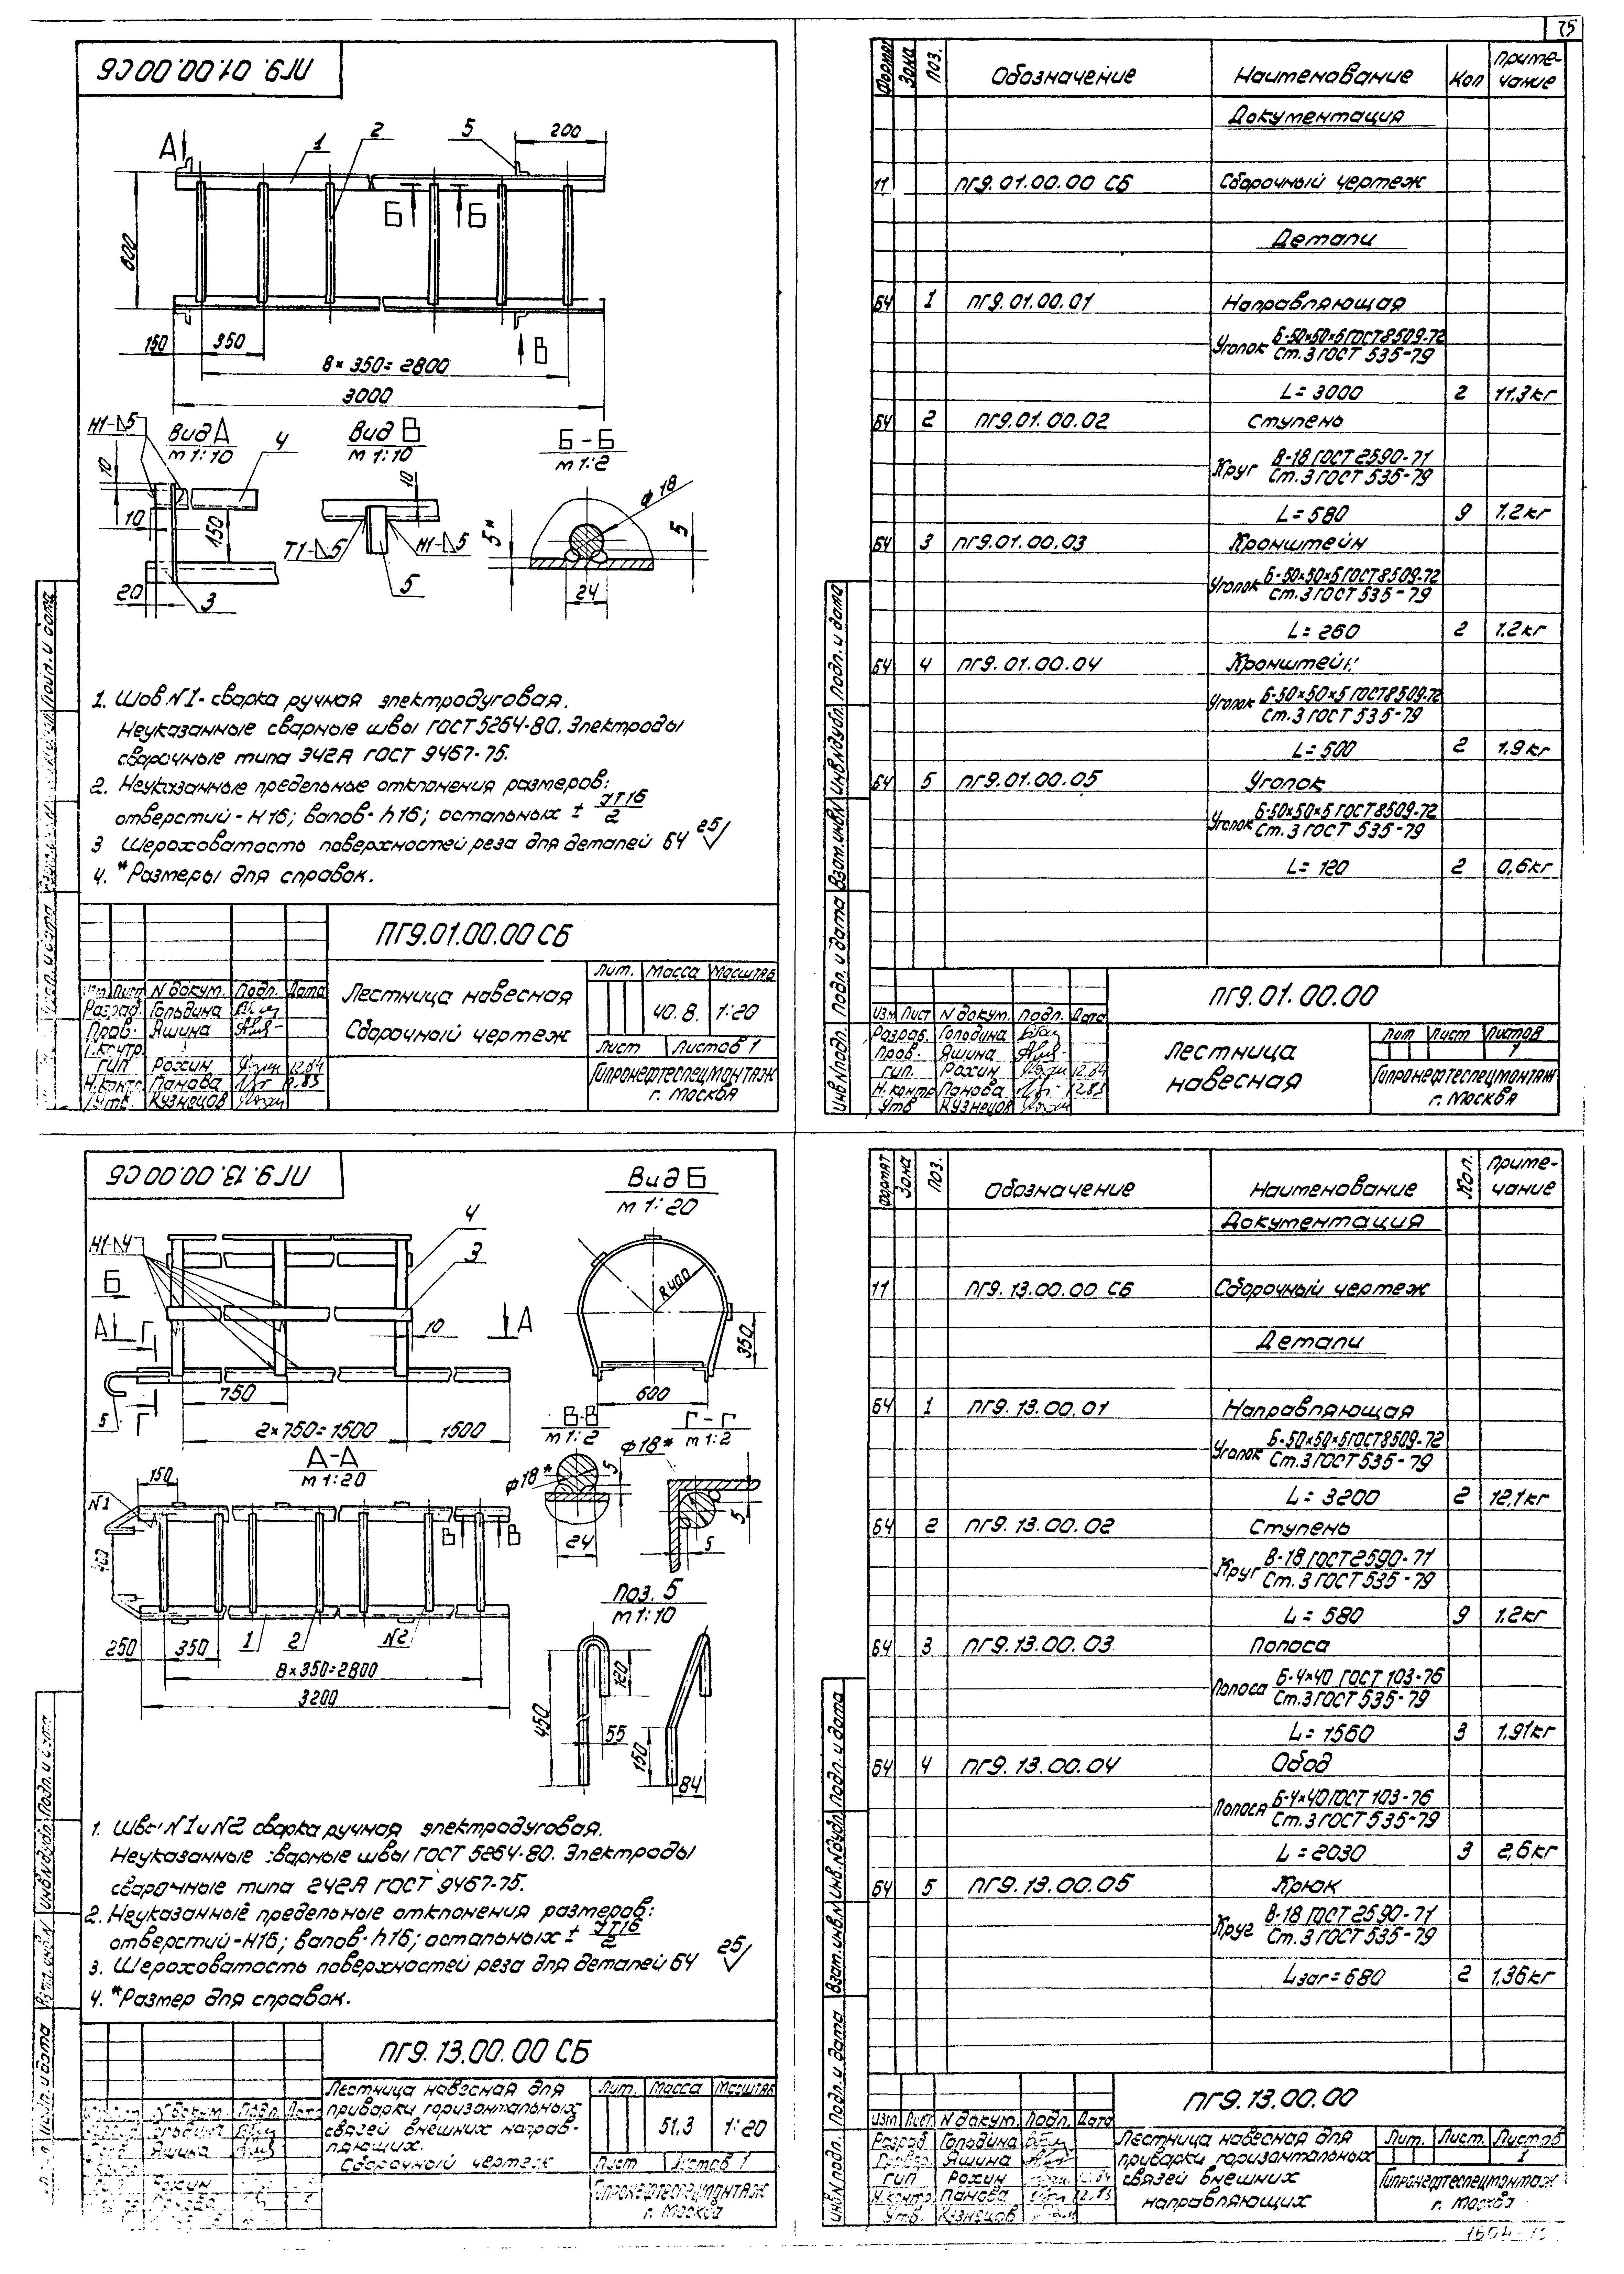 75
ПГ9.01.00.00 СБ
А
1
2
5
200
Б
Б
600
150
350
В
8×350=2800
3000
Н1-⊿5
Вид А
м 1:10
4
10
10
150
20
3
Вид В
м 1:10
10
Т1-⊿5
Н1-⊿5
5
Б-Б
м 1:2
ф18
5*
5
24
1. Шов N1- сварка ручная электродуговая.
Неуказанные сварные швы ГОСТ 5264-80. Электроды
сварочные типа Э42А ГОСТ 9467-75.
2. Неуказанные предельные отклонения размеров:
отверстий - Н16; валов - h16; остальных ± JT16/2
3 Шероховатость поверхностей реза для деталей БЧ 25/
4. *Размеры для справок.
ПГ9.01.00.00 СБ
Лестница навесная
Сборочный чертеж
Лит. Масса Масштаб
40.8. 1:20
Лист Листов 1
Гипронефтеспецмонтаж
г. Москва
Изм Лист N докум. Подп. Дата
Разраб. Гольдина
Пров. Яшина
Т.контр.
ГИП Рохин 12.84
Н.контр. Панова
Утв. Кузнецов
Формат Зона Поз. Обозначение Наименование Кол Примечание
Документация
11 ПГ9.01.00.00 СБ Сборочный чертеж
Детали
БЧ 1 ПГ9.01.00.01 Направляющая
Уголок Б-50×50×5 ГОСТ 8509-72
Ст.3 ГОСТ 535-79
L=3000 2 11,3кг
БЧ 2 ПГ9.01.00.02 Ступень
Круг В-18 ГОСТ 2590-71
Ст.3 ГОСТ 535-79
L=580 9 1,2кг
БЧ 3 ПГ9.01.00.03 Кронштейн
Уголок Б-50×50×5 ГОСТ 8509-72
Ст.3 ГОСТ 535-79
L=260 2 1,2кг
БЧ 4 ПГ9.01.00.04 Кронштейн
Уголок Б-50×50×5 ГОСТ 8509-72
Ст.3 ГОСТ 535-79
L=500 2 1,9кг
БЧ 5 ПГ9.01.00.05 Уголок
Уголок Б-50×50×5 ГОСТ 8509-72
Ст.3 ГОСТ 535-79
L=120 2 0,6кг
Инв.N подл. Подп. и дата Взам.инв.N Инв.N дубл. Подп. и дата
ПГ9.01.00.00
Изм Лист N докум. Подп. Дата
Разраб. Гольдина
Пров. Яшина
ГИП. Рохин 12.84
Н.контр Панова 12.83
Утв Кузнецов
Лестница
навесная
Лит Лист Листов
1
Гипронефтеспецмонтаж
г. Москва
ПГ9.13.00.00 СБ
Н1-⊿4
Б
4
3
А
Г
10
А
5
Г
750
2×750=1500
1500
Вид Б
м 1:20
R400
350
600
А-А
м 1:20
150
N1
400
В
В
250
350
1
2
N2
8×350=2800
3200
В-В
м 1:2
ф18*
5
24
Г-Г
м 1:2
ф18*
5
5
Поз. 5
м 1:10
450
120
55
150
84
1. Швы N1 и N2 сварка ручная электродуговая.
Неуказанные сварные швы ГОСТ 5264-80. Электроды
сварочные типа Э42А ГОСТ 9467-75.
2. Неуказанные предельные отклонения размеров:
отверстий-Н16; валов-h16; остальных ± JT16/2
3. Шероховатость поверхностей реза для деталей БЧ 25/
4. *Размер для справок.
ПГ9.13.00.00 СБ
Лестница навесная для
приварки горизонтальных
связей внешних направ-
ляющих.
Сборочный чертеж
Лит. Масса Масштаб
51,3 1:20
Лист Листов 1
Гипронефтеспецмонтаж
г. Москва
N докум. Подп. Дата
Яшина
Рохин
Формат Зона Поз. Обозначение Наименование Кол. Примечание
Документация
11 ПГ9.13.00.00 СБ Сборочный чертеж
Детали
БЧ 1 ПГ9.13.00.01 Направляющая
Уголок Б-50×50×5 ГОСТ 8509-72
Ст.3 ГОСТ 535-79
L=3200 2 12,1кг
БЧ 2 ПГ9.13.00.02 Ступень
Круг В-18 ГОСТ 2590-71
Ст.3 ГОСТ 535-79
L=580 9 1,2кг
БЧ 3 ПГ9.13.00.03 Полоса
Полоса Б-4×40 ГОСТ 103-76
Ст.3 ГОСТ 535-79
L=1560 3 1,91кг
БЧ 4 ПГ9.13.00.04 Обод
Полоса Б-4×40 ГОСТ 103-76
Ст.3 ГОСТ 535-79
L=2030 3 2,6кг
БЧ 5 ПГ9.13.00.05 Крюк
Круг В-18 ГОСТ 2590-71
Ст.3 ГОСТ 535-79
Lзаг=680 2 1,36кг
Инв.N подл. Подп. и дата Взам.инв.N Инв.N дубл. Подп. и дата
ПГ9.13.00.00
Изм Лист N докум. Подп. Дата
Разраб. Гольдина
Яшина
ГИП Рохин 12.84
Н.контр. Панова 12.83
Утв. Кузнецов
Лестница навесная для
приварки горизонтальных
связей внешних
направляющих
Лит. Лист. Листов
1
Гипронефтеспецмонтаж
г. Москва